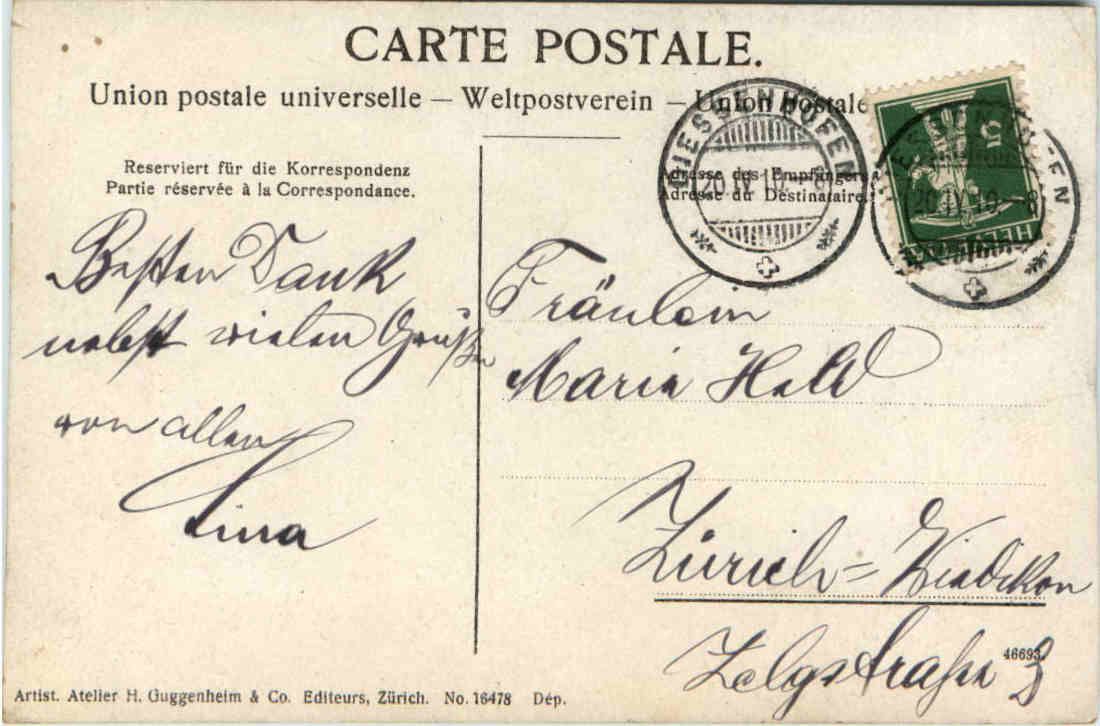 CARTE POSTALE.
Union postale universelle — Weltpostverein — Union Postale
Reserviert für die Korrespondenz
Partie réservée à la Correspondance.
Adresse des Empfängers
Adresse du Destinataire
DIESSENHOFEN
20.IV.10.-8
DIESSENHOFEN
20.IV.10.-8
5
HELVETIA
Besten Dank
nebst vielen Grüßen
von allen
Lina
Fräulein
Marie Held
Zürich-Wiedikon
Zelgstraße 3
46693.
Artist. Atelier H. Guggenheim & Co. Editeurs, Zürich. No. 16478 Dép.